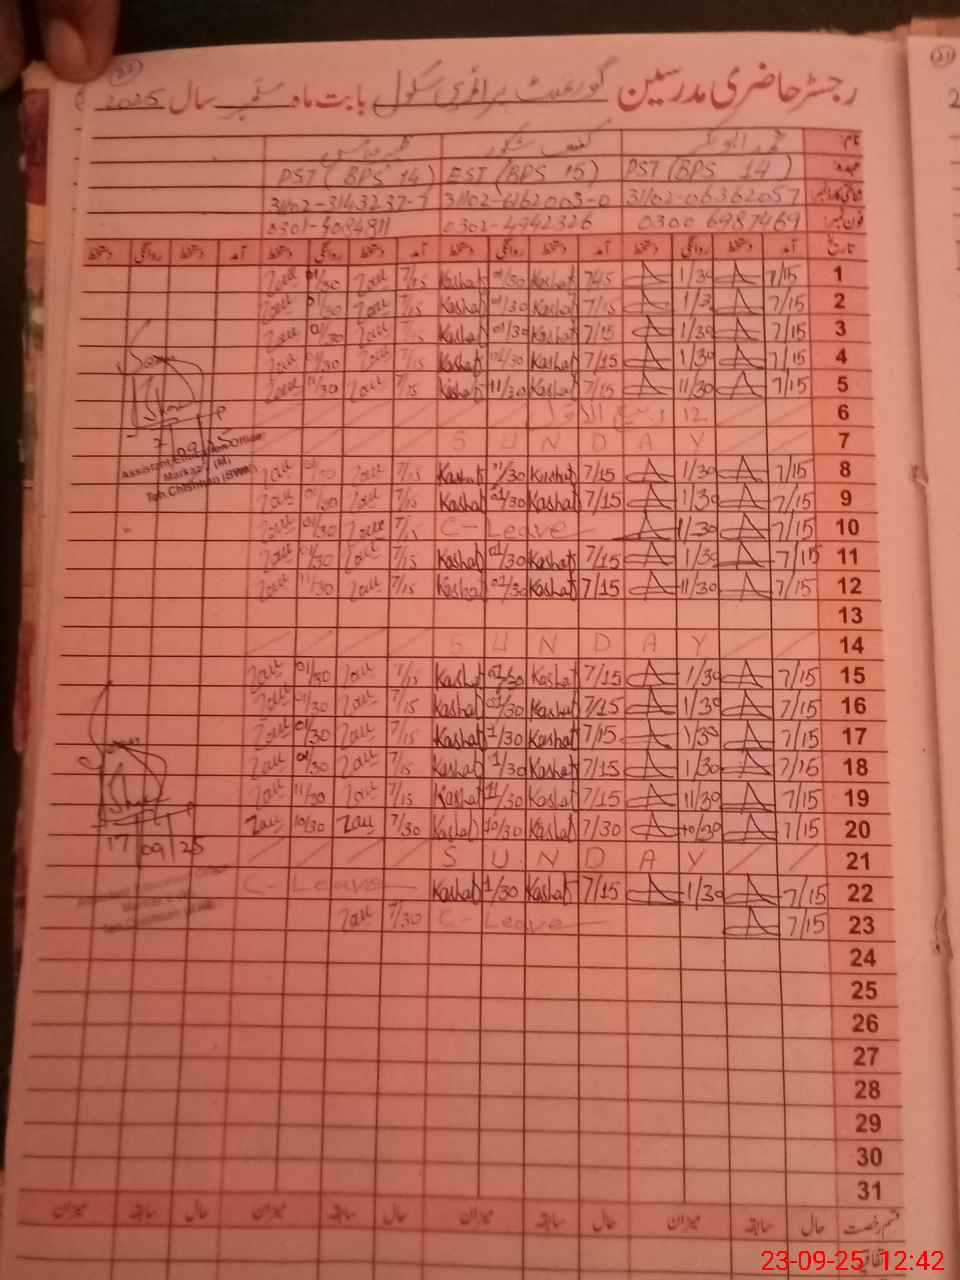 رجسٹر حاضری مدرسین گورنمنٹ پرائمری سکول بابت ماہ ستمبر سال 2025
نام:
عہدہ: PST (BPS 14) EST (BPS 15) PST (BPS 14)
31102-06362057 31102-6162003-0 31102-3143237-7
فون نمبر: 0300 6987469 0302-4942326 0301-4084811
تاریخ آمد دستخط روانگی دستخط آمد دستخط روانگی دستخط آمد دستخط روانگی دستخط آمد دستخط روانگی دستخط
1 7/15 1/30 7/15 Kashaf 01/30 Kashaf 7/15 01/30
2 7/15 7/15 Kashaf 01/30 Kashaf 7/15 01/30
3 7/15 1/30 7/15 Kashaf 01/30 Kashaf 7/15 01/30
4 7/15 1/30 7/15 Kashaf 01/30 Kashaf 7/15 01/30
5 7/15 11/30 7/15 Kashaf 11/30 Kashaf 7/15 11/30
6 12 ربیع الاول
7 SUNDAY
8 7/15 1/30 7/15 Kashaf 01/30 Kashaf 7/15 01/30
9 7/15 1/30 7/15 Kashaf 01/30 Kashaf 7/15 01/30
10 7/15 1/30 C-Leave 7/15 01/30
11 7/15 1/30 7/15 Kashaf 01/30 Kashaf 7/15 01/30
12 7/15 11/30 7/15 Kashaf Kashaf 7/15 11/30
13
14 SUNDAY
15 7/15 1/30 7/15 Kashaf 01/30 Kashaf 7/15 01/30
16 7/15 1/30 7/15 Kashaf 01/30 Kashaf 7/15 01/30
17 7/15 1/30 7/15 Kashaf 1/30 Kashaf 7/15 01/30
18 7/15 1/30 7/15 Kashaf 1/30 Kashaf 7/15 01/30
19 7/15 11/30 7/15 Kashaf 11/30 Kashaf 7/15 11/30
20 7/15 10/30 7/30 Kashaf 10/30 Kashaf 7/30 10/30
21 SUNDAY
22 7/15 1/30 7/15 Kashaf 1/30 Kashaf C-Leave
23 7/15 C-Leave 7/30
24
25
26
27
28
29
30
31
7 09 25
Assistant Education Officer
Markaz (M)
Teh. Chishtian (BWN)
17 09 25
Assistant Education Officer
Teh. Chishtian
قسم رخصت حال سابقہ میزان حال سابقہ میزان حال سابقہ میزان حال سابقہ میزان
اتفاقیہ
23-09-25 12:42